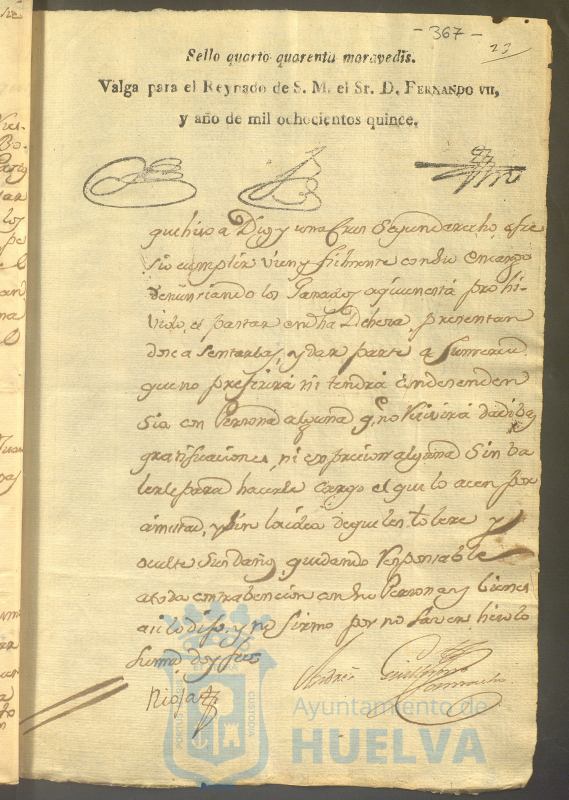 - 367 -
23
Sello quarto quarenta maravedis.
Valga para el Reynado de S. M. el Sr. D. FERNANDO VII,
y año de mil ochocientos quince.
que hiso a Dios y una Cruz segun derecho ofre
sio cumplir vien y fielmente con su Encargo
denunciando los Ganados a quienes está prohi-
vido el pastar en dha Dehesa, presentan
dose a sentarlas, y dar parte a Su merced
que no preferirá ni tendrá condesenden
sia con Persona alguna qe no resivirá dadibas
gratificaciones, ni expresion alguna sin ba
lerle para hacerle cargo el que lo acen por
amistad, y sin la idea de que les tolere y
oculte su daño, quedando responsable
a toda contrabencion con su Persona y bienes
asi lo dijo, y no firmo por no saver hisolo
Su md, doy fee
Riola
Andres Guillermo
Camacho
Ayuntamiento de
HUELVA
PORTUS
CUSTODIA